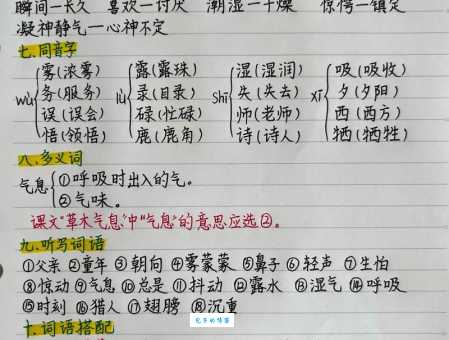 瞬间—长久 喜欢—讨厌 潮湿—干燥 惊愕—镇定
凝神静气—心神不定
七、同音字
wù 雾(浓雾) lù 露(露珠) shī 湿(湿润) xī 吸(吸收)
务(服务) 录(目录) 失(失去) 夕(夕阳)
误(误会) 碌(忙碌) 师(老师) 西(西方)
悟(领悟) 鹿(鹿角) 诗(诗人) 牺(牺牲)
八、多义词
气息 ①呼吸时出入的气。
②气味。
课文“草木气息”中“气息”的意思应选②。
九、听写词语
①父亲 ②童年 ③朝向 ④雾蒙蒙 ⑤鼻子 ⑥轻声 ⑦生怕
⑧惊动 ⑨气息 ⑩总是 ⑪抖动 ⑫露水 ⑬湿气 ⑭呼吸
⑮时刻 ⑯猎人 ⑰翅膀 ⑱沉重
十、词语搭配